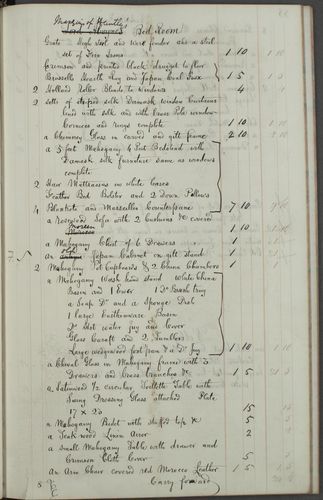 Marquis of Huntly's
Lord Bed Room
Grate High Foot and wire fender and a steel
set of Fire Irons 1 10
Crimson and printed black drugget to floor
Brussells Hearth Rug and Japan Coal Box 1 5
2 Holland Roller Blinds to Windows 4
2 sets of striped silk Damask window Curtains
lined with silk and with Brass Pole window
Cornices and rings complete 1 10
a Chimney Glass in carved and gilt frame 2 10
a 5 foot Mahogany 4 Post Bedstead with
Damask silk furniture same as windows
complete
2 Hair Mattrasses in white Cases
Feather Bed Bolster and 2 Down Pillows
4 Blankets and Marsailles Counterpane 7 10
a rosewood Sofa with 2 Cushions & covered
Moreen 1 10
a Mahogany Chest of 6 Drawers 1
An antique Japan Cabinet on gilt stand 1
2 Mahogany Pot Cupboards & 2 China Chambers 1
a Mahogany Wash hand stand white China
Basin and 1 Ewer 1 Do Brush tray
a Soap Do and a Sponge Dish
1 large Earthenware Basin
Do Hot water jug and Cover
Glass Caraft and 2 Tumblers
Large wedgewood foot pan & a Do Jug 1 10
a Cheval Glass in Mahogany frame with 3
Drawers and Brass branches &c 1 5
a Satinwood 1/2 circular Toilette Table with
Swing Dressing Glass attached Plate
17 x 23 15
a Mahogany Bidet with stuffed top &c 5
a Teak wood Linen Airer 2
a Small Mahogany Table with drawer and
Crimson Cloth Cover 5
An Arm Chair covered red Morocco Leather 1 5
Carry forward